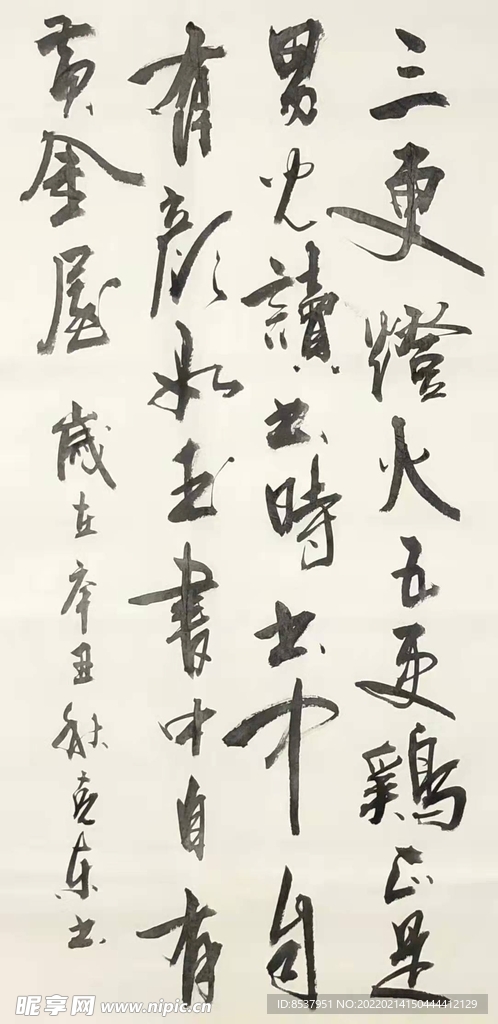 三更燈火五更鷄正是
男児讀书時书中自
有颜如玉書中自有
黄金屋
歲在辛丑秋克东书
昵享网 www.nipic.cn
ID:8537951 NO:20220214150444412129